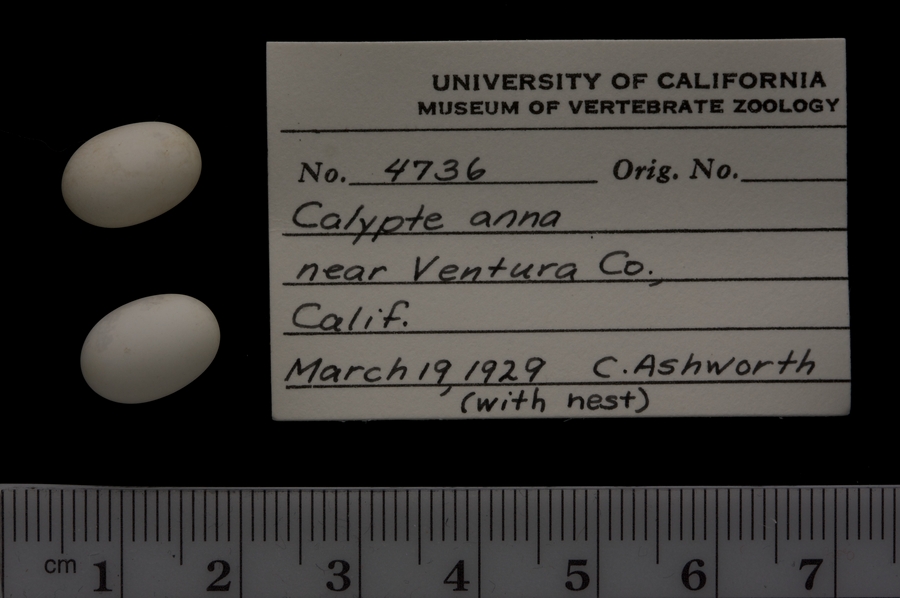 UNIVERSITY OF CALIFORNIA
MUSEUM OF VERTEBRATE ZOOLOGY
No. 4736 Orig. No.
Calypte anna
near Ventura Co.,
Calif.
March 19, 1929 C. Ashworth
(with nest)
cm 1 2 3 4 5 6 7